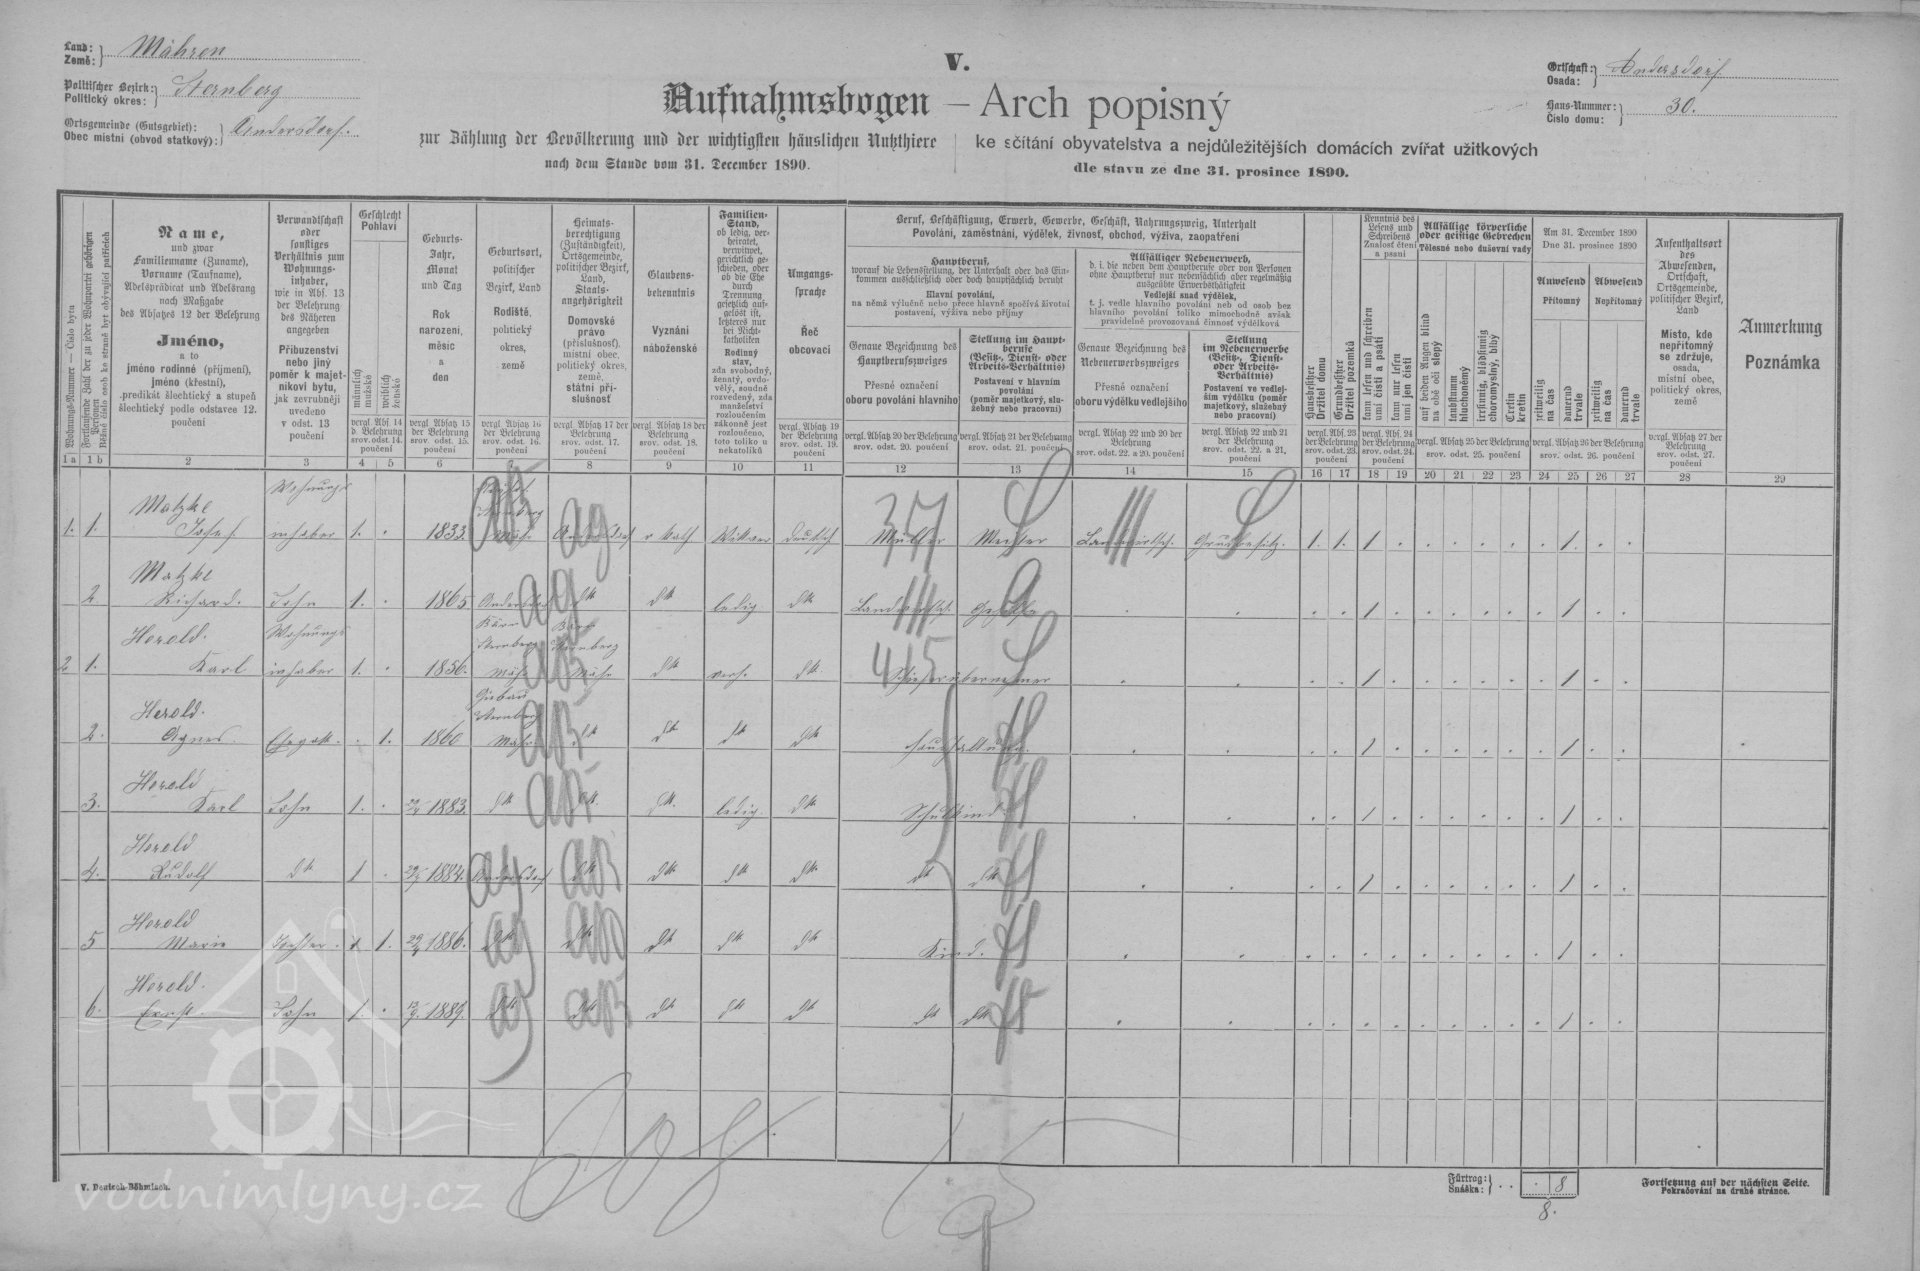 Land: Mähren
Země:
Politischer Bezirk: Sternberg
Politický okres:
Ortsgemeinde (Gutsgebiet): Andersdorf.
Obec místní (obvod statkový):
V.
Aufnahmsbogen — Arch popisný
zur Zählung der Bevölkerung und der wichtigsten häuslichen Nutzthiere
nach dem Stande vom 31. December 1890.
ke sčítání obyvatelstva a nejdůležitějších domácích zvířat užitkových
dle stavu ze dne 31. prosince 1890.
Ortschaft: Andersdorf
Osada:
Haus-Nummer: 30.
Číslo domu:
Wohnungs-Nummer — Číslo bytu
Fortlaufende Zahl der zu jeder Wohnpartei gehörigen Personen
Běžné číslo osob ke straně byt obývající patřících
Name,
und zwar
Familienname (Zuname),
Vorname (Taufname),
Adelsprädicat und Adelsrang
nach Maßgabe
des Absatzes 12 der Belehrung
Jméno,
a to
jméno rodinné (příjmení),
jméno (křestní),
predikát šlechtický a stupeň
šlechtický podle odstavce 12.
poučení
Verwandtschaft
oder
sonstiges
Verhältnis zum
Wohnungs-
inhaber,
wie in Abs. 13
der Belehrung
des Näheren
angegeben
Příbuzenství
nebo jiný
poměr k majet-
níkovi bytu,
jak zevrubněji
uvedeno
v odst. 13
poučení
Geschlecht
Pohlaví
männlich
mužské
weiblich
ženské
vergl. Abs. 14
d. Belehrung
srov. odst. 14.
poučení
Geburts-
Jahr,
Monat
und Tag
Rok
narození,
měsíc
a
den
vergl. Absatz 15
der Belehrung
srov. odst. 15.
poučení
Geburtsort,
politischer
Bezirk, Land
Rodiště,
politický
okres,
země
vergl. Absatz 16
der Belehrung
srov. odst. 16.
poučení
Heimats-
berechtigung
(Zuständigkeit),
Ortsgemeinde,
politischer Bezirk,
Land,
Staats-
angehörigkeit
Domovské
právo
(příslušnost),
místní obec,
politický okres,
země,
státní pří-
slušnost
vergl. Absatz 17 der
Belehrung
srov. odst. 17.
poučení
Glaubens-
bekenntnis
Vyznání
náboženské
vergl. Absatz 18 der
Belehrung
srov. odst. 18.
poučení
Familien-
Stand,
ob ledig, ver-
heiratet,
verwitwet,
gerichtlich ge-
schieden, oder
ob die Ehe
durch
Trennung
gesetzlich auf-
gelöst ist,
letzteres nur
bei Nicht-
katholiken
Rodinný
stav,
zda svobodný,
ženatý, ovdo-
vělý, soudně
rozvedený, zda
manželství
rozloučením
zákonně jest
rozloučeno,
toto toliko u
nekatolíků
Umgangs-
sprache
Řeč
obcovací
vergl. Absatz 19
der Belehrung
srov. odst. 19.
poučení
Beruf, Beschäftigung, Erwerb, Gewerbe, Geschäft, Nahrungszweig, Unterhalt
Povolání, zaměstnání, výdělek, živnost, obchod, výživa, zaopatření
Hauptberuf,
worauf die Lebensstellung, der Unterhalt oder das Ein-
kommen ausschließlich oder doch hauptsächlich beruht
Hlavní povolání,
na němž výlučně nebo přece hlavně spočívá životní
postavení, výživa nebo příjmy
Genaue Bezeichnung des
Hauptberufszweiges
Přesné označení
oboru povolání hlavního
vergl. Absatz 20 der Belehrung
srov. odst. 20. poučení
Stellung im Haupt-
berufe
(Besitz-, Dienst- oder
Arbeits-Verhältnis)
Postavení v hlavním
povolání
(poměr majetkový, slu-
žebný nebo pracovní)
vergl. Absatz 21 der Belehrung
srov. odst. 21. poučení
Allfälliger Nebenerwerb,
d. i. die neben dem Hauptberufe oder von Personen
ohne Hauptberuf nur nebensächlich aber regelmäßig
ausgeübte Erwerbsthätigkeit
Vedlejší snad výdělek,
t. j. vedle hlavního povolání neb od osob bez
hlavního povolání toliko mimochodně avšak
pravidelně provozovaná činnost výdělková
Genaue Bezeichnung des
Nebenerwerbszweiges
Přesné označení
oboru výdělku vedlejšího
vergl. Absatz 22 und 20 der
Belehrung
srov. odst. 22. a 20. poučení
Stellung
im Nebenerwerbe
(Besitz-, Dienst-
oder Arbeits-
Verhältnis)
Postavení ve vedlej-
ším výdělku (poměr
majetkový, služebný
nebo pracovní)
vergl. Absatz 22 und 21
der Belehrung
srov. odst. 22. a 21.
poučení
Hausbesitzer
Držitel domu
Grundbesitzer
Držitel pozemků
vergl. Abs. 23
der Belehrung
srov. odst. 23.
poučení
Kenntnis des
Lesens und
Schreibens
Znalost čtení
a psaní
kann lesen und schreiben
umí čísti a psáti
kann nur lesen
umí jen čísti
vergl. Abs. 24
der Belehrung
srov. odst. 24.
poučení
Allfällige körperliche
oder geistige Gebrechen
Tělesné nebo duševní vady
auf beiden Augen blind
na obě oči slepý
taubstumm
hluchoněmý
irrsinnig, blödsinnig
choromyslný, blbý
Cretin
kretin
vergl. Absatz 25 der Belehrung
srov. odst. 25. poučení
Am 31. December 1890
Dne 31. prosince 1890
Anwesend
Přítomný
Abwesend
Nepřítomný
zeitweilig
na čas
dauernd
trvale
zeitweilig
na čas
dauernd
trvale
vergl. Absatz 26 der Belehrung
srov. odst. 26. poučení
Aufenthaltsort
des
Abwesenden,
Ortschaft,
Ortsgemeinde,
politischer Bezirk,
Land
Místo, kde
nepřítomný
se zdržuje,
osada,
místní obec,
politický okres,
země
vergl. Absatz 27 der
Belehrung
srov. odst. 27.
poučení
Anmerkung
Poznámka
1a 1b 2 3 4 5 6 7 8 9 10 11 12 13 14 15 16 17 18 19 20 21 22 23 24 25 26 27 28 29
Matzke Wohnungs
Sternberg
1. 1. Josef inhaber 1. . 1833 Mähr Andersdorf r. kath Witwer deutsch Müller Meister Landwirtsch. Grundbesitz. 1. 1. 1 . . . . . . 1. . .
Matzke
2 Richard. Sohn 1. . 1865 Andersdorf dtt dtt ledig dtt Landwirtsch. . . . . 1 . . . . . . 1 . .
Herold. Wohnungs Bärn Bärn
Sternberg Sternberg
2 1. Karl inhaber 1. . 1856. Mähr Mähr dtt verh. dtt 415 . . . . 1 . . . . . . 1 . .
Herold. Giebau
Sternberg
2. Agnes Ehegatt. . 1. 1860 Mähr dtt dtt dtt dtt Haushaltung. . . . . 1 . . . . . . 1 . .
Herold
3. Karl Sohn 1. . 1883 dtt dtt dtt ledig. dtt Schulkind . . . . 1 . . . . . . 1 . .
Herold
4. Rudolf dtt 1 . 1884. Andersdorf dtt dtt dtt dtt dtt dtt . . . . 1 . . . . . . 1 . .
Herold
5 Marie Tochter. 1. 1886. dtt dtt dtt dtt dtt Kind. . . . . . . . . . . . 1 . .
Herold.
6. Ernst. Sohn 1. . 1889. dtt dtt dtt dtt dtt dtt dtt . . . . . . . . . . . 1 . .
608
15
V. Deutsch-Böhmisch.
vodnimlyny.cz
Fürtrag: . . . 8
Snáška:
8.
Fortsetzung auf der nächsten Seite.
Pokračování na druhé stránce.